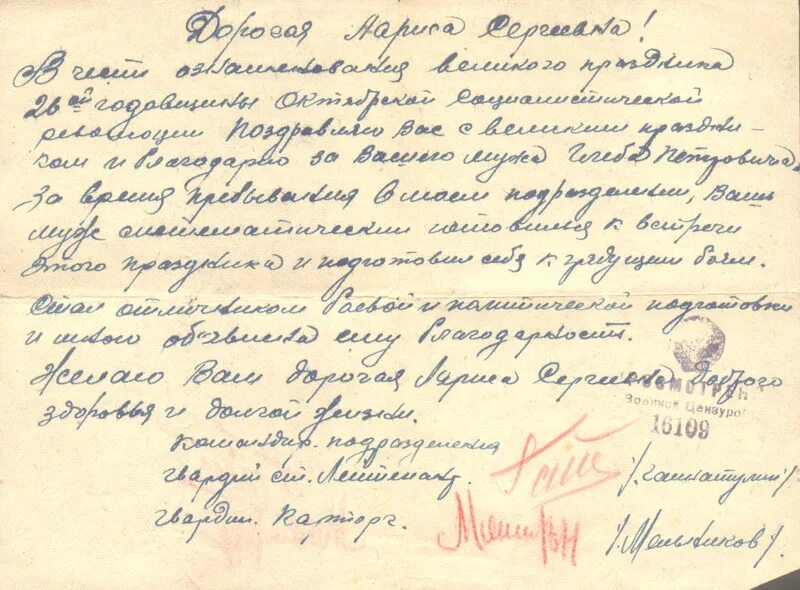 Дорогая Лариса Сергеевна!
В честь ознаменования великого праздника
26ой годовщины Октябрской Социалистической
революции Поздравляю Вас с великим праздни-
ком и благодарю за Вашего мужа Глеба Петровича,
за время пребывания в моем подразделении, Ваш
муж систематически готовился к встречи
этого праздника и подготовил себя к грядущим боям.
Стал отличником боевой и политической подготовки
и мною объявлена ему благодарность.
Желаю Вам дорогая Лариса Сергеевна доброго
здоровья и долгой жизни.
ПРОСМОТРЕНО
Военной Цензурой
16109
командир подразделения
гвардии ст. Лейтенант
гвардии парторг.
/Мельников/.